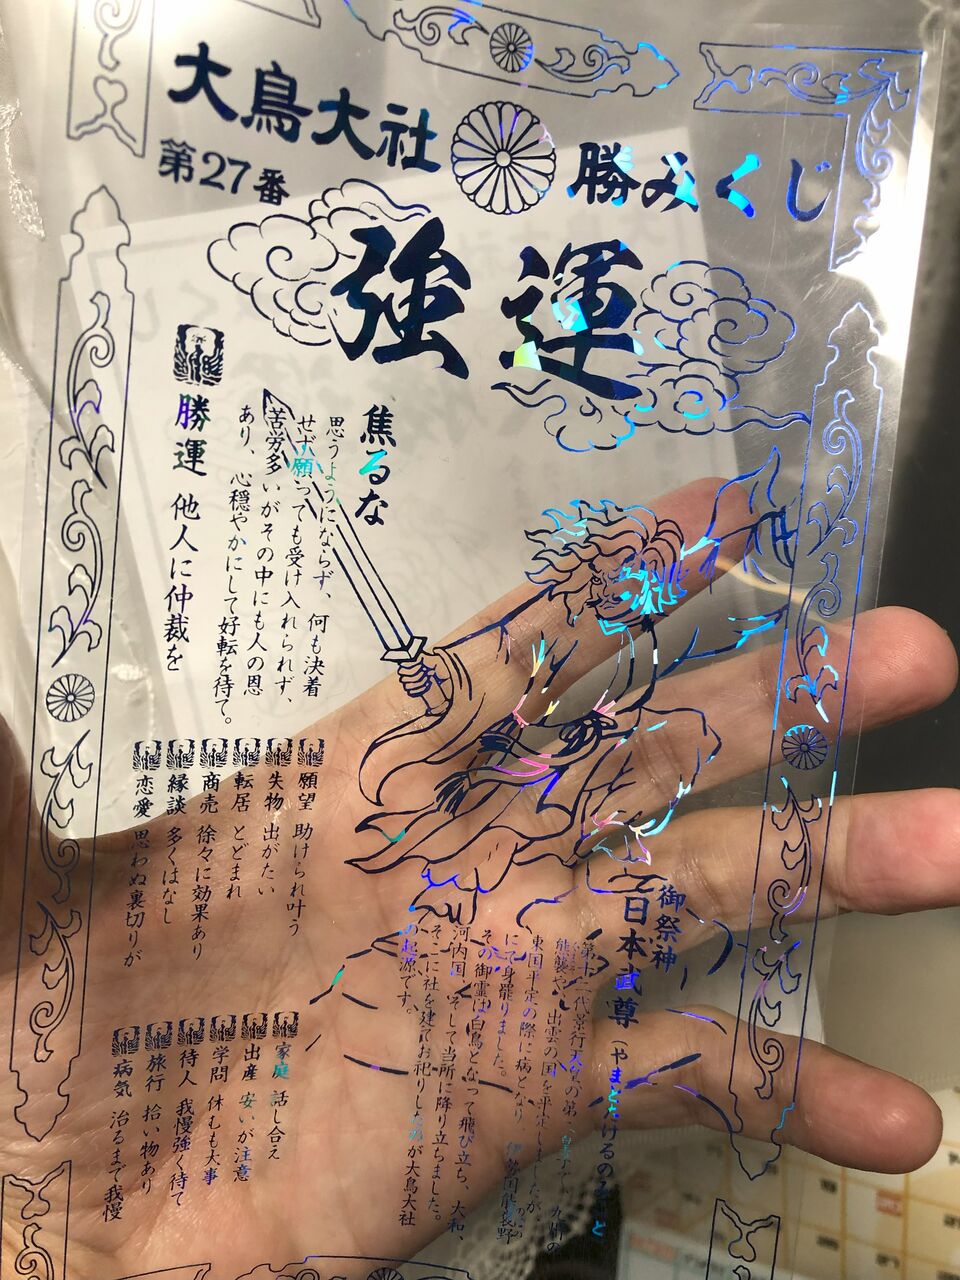 大鳥大社
勝みくじ
第27番
強運
焦るな
思うようにならず、何も決着
せず願っても受け入れられず、
苦労多いがその中にも人の恩
あり、心穏やかにして好転を待て。
勝運 他人に仲裁を
願望 助けられ叶う
失物 出がたい
転居 とどまれ
商売 徐々に効果あり
縁談 多くはなし
恋愛 思わぬ裏切りが
家庭 話し合え
出産 安いが注意
学問 休むも大事
待人 我慢強く待て
旅行 拾い物あり
病気 治るまで我慢
御祭神
日本武尊(やまとたけるのみこと
第十二代景行天皇の第二皇子で、九州の
熊襲や、出雲の国を平定しましたが、
東国平定の際に病となり、伊勢国能褒野
にて身罷りました。
その御霊は白鳥となって飛び立ち、大和、
河内国、そして当所に降り立ちました。
そこに社を建てお祀りしたのが大鳥大社
の起源です。